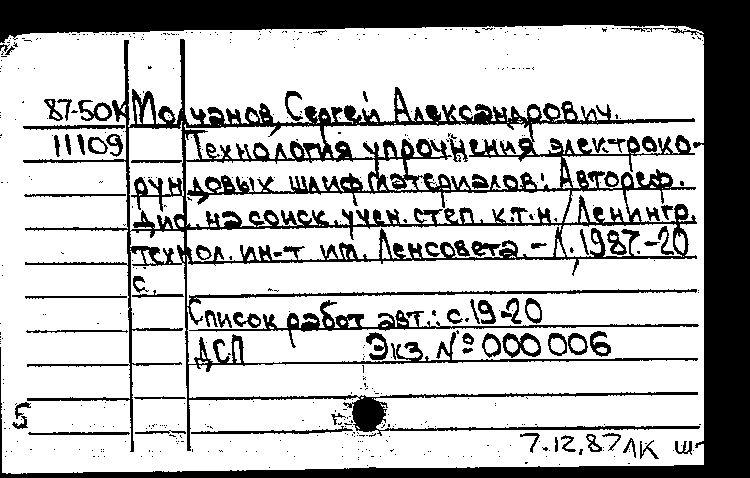 87-50К Молчанов Сергей Александрович.
11109 Технология упрочнения электроко-
рундовых шлифматериалов: Автореф.
дис. на соиск. учен. степ. к.т.н. / Ленингр.
технол. ин-т им. Ленсовета. - Л. 1987. - 20
с.
Список работ авт.: с. 19-20
ДСП Экз. № 000006
5
7.12.87 ЛК